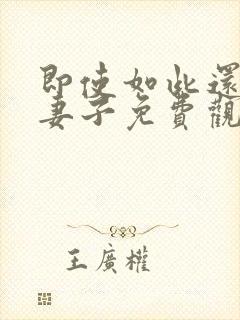 即使如此還
妻子免費觀
王廣權